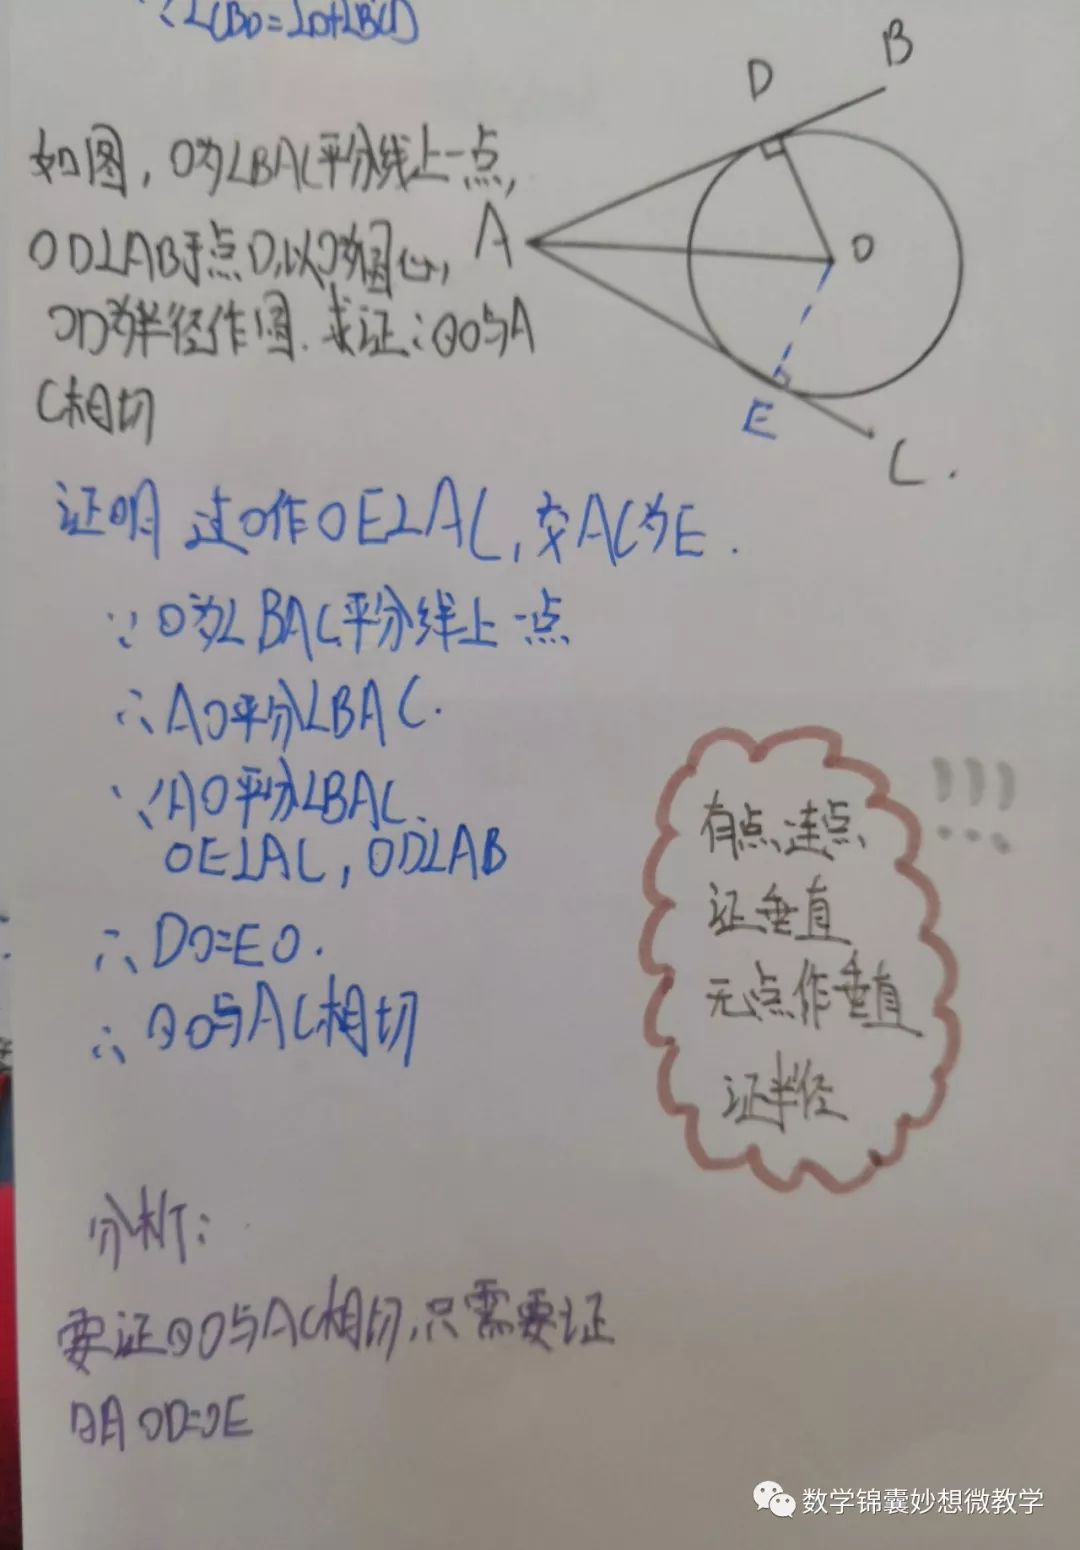 ∵∠CBD=∠D+∠BCD
如图，O为∠BAC平分线上一点，
OD⊥AB于点D，以O为圆心，
OD为半径作圆．求证：⊙O与A
C相切
D
B
A
O
E
C．
证明 过O作OE⊥AC，交AC为E．
∵O为∠BAC平分线上一点
∴AO平分∠BAC．
∵AO平分∠BAC．
OE⊥AC，OD⊥AB
∴DO=EO．
∴⊙O与AC相切
有点连点
证垂直
无点作垂直
证半径
!!!
分析：
要证⊙O与AC相切，只需要证
明OD=OE
数学锦囊妙想微教学